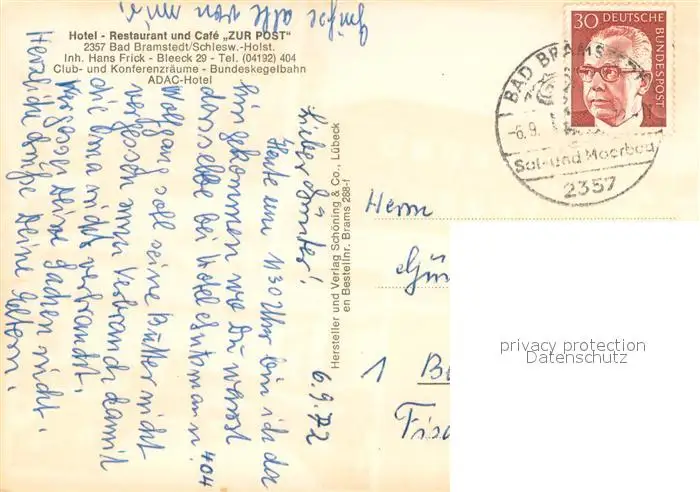 Hotel - Restaurant und Café „ZUR POST"
2357 Bad Bramstedt/Schlesw.-Holst.
Inh. Hans Frick - Bleeck 29 - Tel. (04192) 404
Club- und Konferenzräume - Bundeskegelbahn
ADAC-Hotel
6.9.72
Lieber Günter!
Heute um 11 30 Uhr bin ich da
hin gekommen wo Du warst
dasselbe bei Hotel 404
Wolfgang soll seine Butter nicht
vergessen zum Verbrauch damit
die Oma nicht verbraucht.
Vergesse Deine Sachen nicht.
Herzliche Grüße Deine Eltern.
Grüße alle von mir!
Hersteller und Verlag Schöning & Co., Lübeck
en Bestellnr. Brams 288-f
30 DEUTSCHE
BUNDESPOST
BAD BRAMST
-6.9.
Sol- und Moorbad
2357
Herrn
Gün
1 B
Fis
privacy protection
Datenschutz